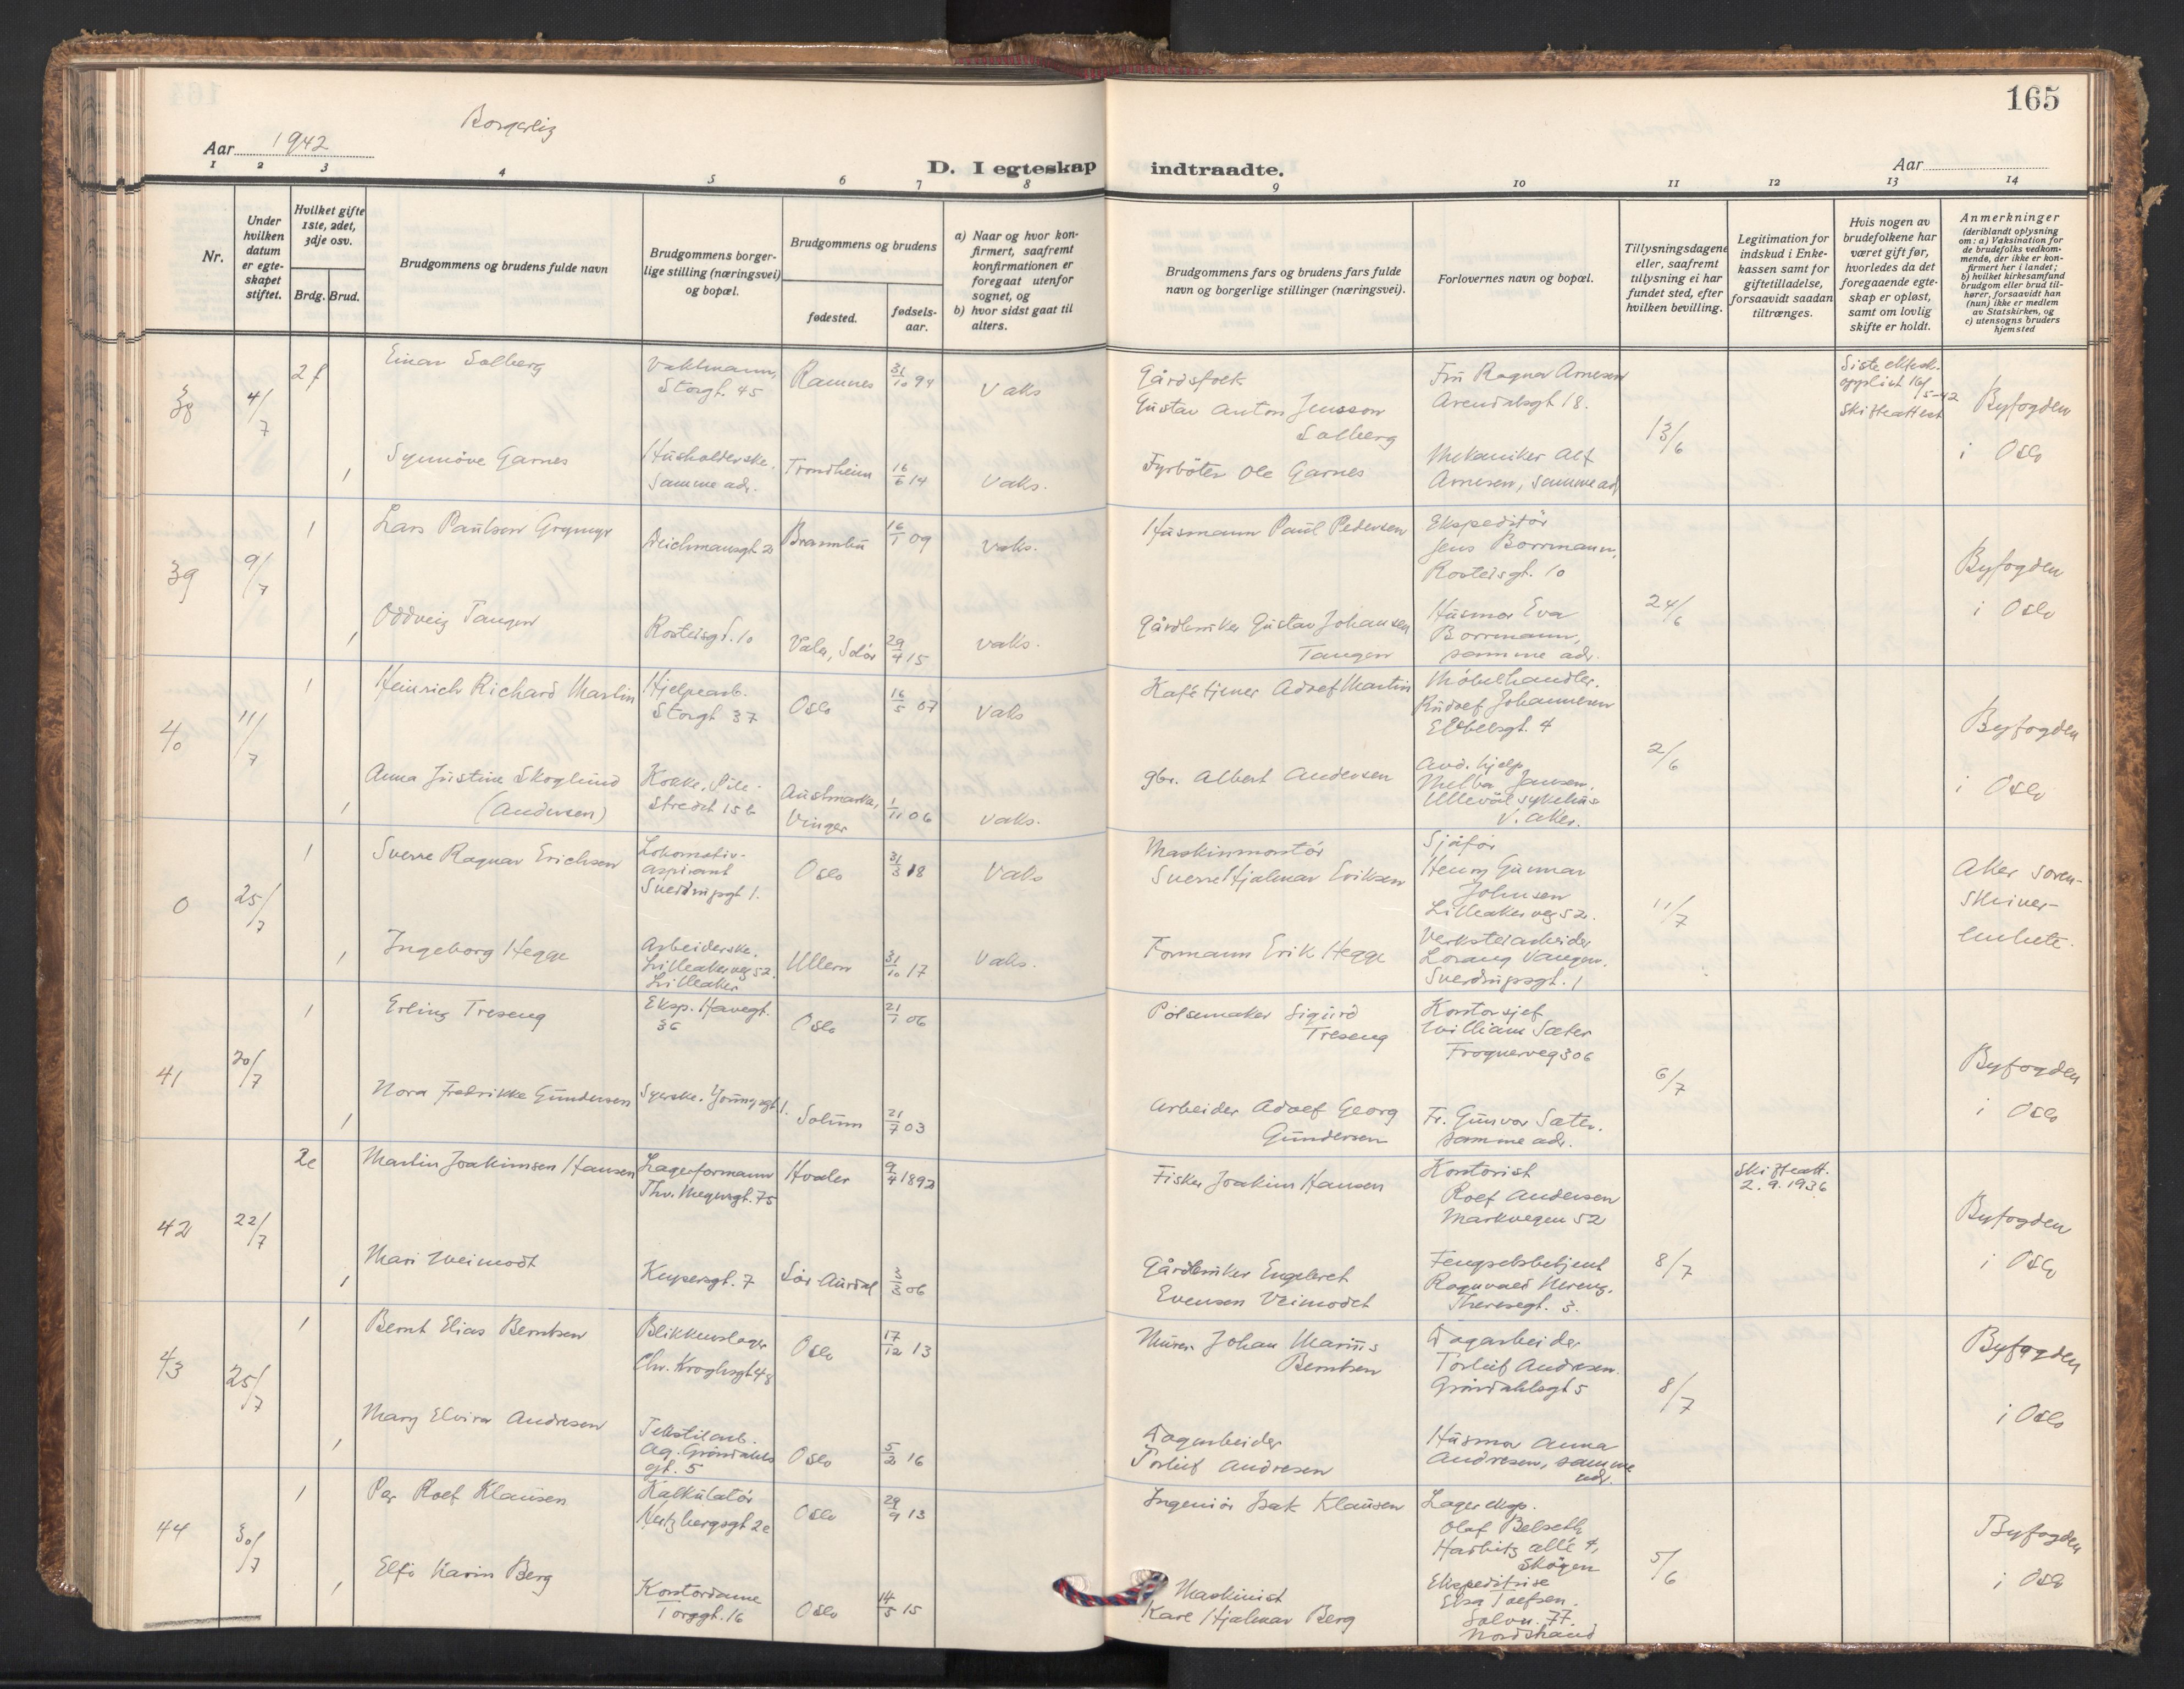 165
Borgerlig
Aar 1942
Aar
D. I egteskap indtraadte.
1 2 3 4 5 6 7 8 9 10 11 12 13 14
Nr.
Under hvilken datum er egteskapet stiftet.
Hvilket gifte 1ste, 2det, 3dje osv.
Brdg. Brud.
Brudgommens og brudens fulde navn
Brudgommens borgerlige stilling (næringsvei) og bopæl.
Brudgommens og brudens
fødested.
fødselsaar.
a) Naar og hvor konfirmert, saafremt konfirmationen er foregaat utenfor sognet, og
b) hvor sidst gaat til alters.
Brudgommens fars og brudens fars fulde navn og borgerlige stillinger (næringsvei).
Forlovernes navn og bopæl.
Tillysningsdagene eller, saafremt tillysning ei har fundet sted, efter hvilken bevilling.
Legitimation for indskud i Enkekassen samt for giftetilladelse, forsaavidt saadan tiltrænges.
Hvis nogen av brudefolkene har været gift før, hvorledes da det foregaaende egteskap er opløst, samt om lovlig skifte er holdt.
Anmerkninger (deriblandt oplysning om: a) Vaksination for de brudefolks vedkommende, der ikke er konfirmert her i landet; b) hvilket kirkesamfund brudgom eller brud tilhører, forsaavidt han (hun) ikke er medlem av Statskirken, og c) utensogns bruders hjemsted
38 4/7 2f Einar Solberg Vaktmann, Storgt. 45 Ramnes 31/10 94 Vaks
Gårdsfolk Gustav Anton Jensson Solberg
Fru Ragna Arnesen Arendalsgt 18.
13/6
Siste ektesk. oppløst 16/5-42 Skifteattest
Byfogden i Oslo
1 Synnöve Garnes Husholderske, Samme adr. Trondheim 16/6 14 Vaks.
Fyrböter Ole Garnes
Mekaniker Alf Arnesen, samme adr
39 9/7 1 Lars Paulsen Grymyr Deichmansgt 2 Brandbu 16/1 09 Vaks.
Husmann Paul Pedersen
Ekspeditör Jens Borrmann, Rosteisgt. 10
24/6
Byfogden i Oslo
1 Oddveig Tangen Rosteisgt. 10 Våler, Solör 29/4 15 Vaks.
Gårdbruker Gustav Johansen Tangen
Husmor Eva Borrmann, samme adr.
40 11/7 1 Heinrich Richard Martin Hjelpearb. Storgt 37 Oslo 16/5 07 Vaks
Kafétjener Adolf Martin
Möbelhandler. Rudolf Johannesen
2/6
Byfogden i Oslo
1 Anna Justine Skoglund (Andersen) Kokke, Pilestredet 15 b Austmarka, Vinger 1/11 06 Vaks.
gbr. Albert Andersen
And. hjelp Melba Jansen. Ullevål sykehus V. Aker.
0 25/7 1 Sverre Ragnar Erichsen Lokomotivaspirant Sverdrupsgt 1. Oslo 31/3 18 Vaks
Maskinmontör Sverre Hjalmar Eriksen
Sjåför Henry Gunnar Johnsen Lilleakerveg 52.
11/7
Aker sorenskriverembete.
1 Ingeborg Hegge Arbeiderske. Lilleakerveg 52. Lilleaker Ullern 31/10 17 Vaks.
Formann Erik Hegge
Verkstedarbeider Lorang Vangen. Sverdrupsgt. 1
41 20/7 1 Erling Treseng Eksp. Havegt. 36 Oslo 21/1 06
Pölsemaker Sigurd Treseng
Kontorsjef William Sæter
6/7
Byfogden i Oslo
1 Nora Fredrikke Gundersen Syerske. Youngsgt 1. Solum 21/7 03
Arbeider Adolf Georg Gundersen
Fr. Gunvor Sæter. samme adr.
42 22/7 2e Martin Joakimsen Hansen Lagerformann Thv. Meyersgt. 75 Hvaler 9/4 1892
Fisker Joakim Hansen
Kontorist Rolf Andersen Markvegen 52
8/7
Skifteatt. 2.9.1936
Byfogden i Oslo
1 Mari Weimodt Keysersgt. 7 Sör Aurdal 3/3 06
Gårdbruker Engebret Evensen Veimodet
Fengselsbetjent Ragnvald Theresegt. 3.
43 25/7 1 Bernt Elias Berntsen Blikkenslager Chr. Kroghsgt 48 Oslo 17/12 13
Murer Johan Marius Berntsen
Fagarbeider Torleif Andresen. Gröndahlsgt 5
8/7
Byfogden i Oslo
1 Mary Elvira Andresen Tekstilarb. Ag. Gröndahls gt. 5 Oslo 5/2 16
Fagarbeider Torleif Andresen
Husmor Anna Andresen, samme adr.
44 30/7 1 Per Rolf Klausen Kalkulatör Hertzbergsgt 2c Oslo 29/9 13
Ingeniör Isak Klausen
Lagereksp. Olaf Belseth, Harbitz allé 4, Skögen
5/6
Byfogden i Oslo
1 Elfi Karin Berg Kontordame Torggt. 16 Oslo 14/5 15
Maskinist Karl Hjalmar Berg
Ekspeditrise Elsa Solvn. 77. Nordstrand